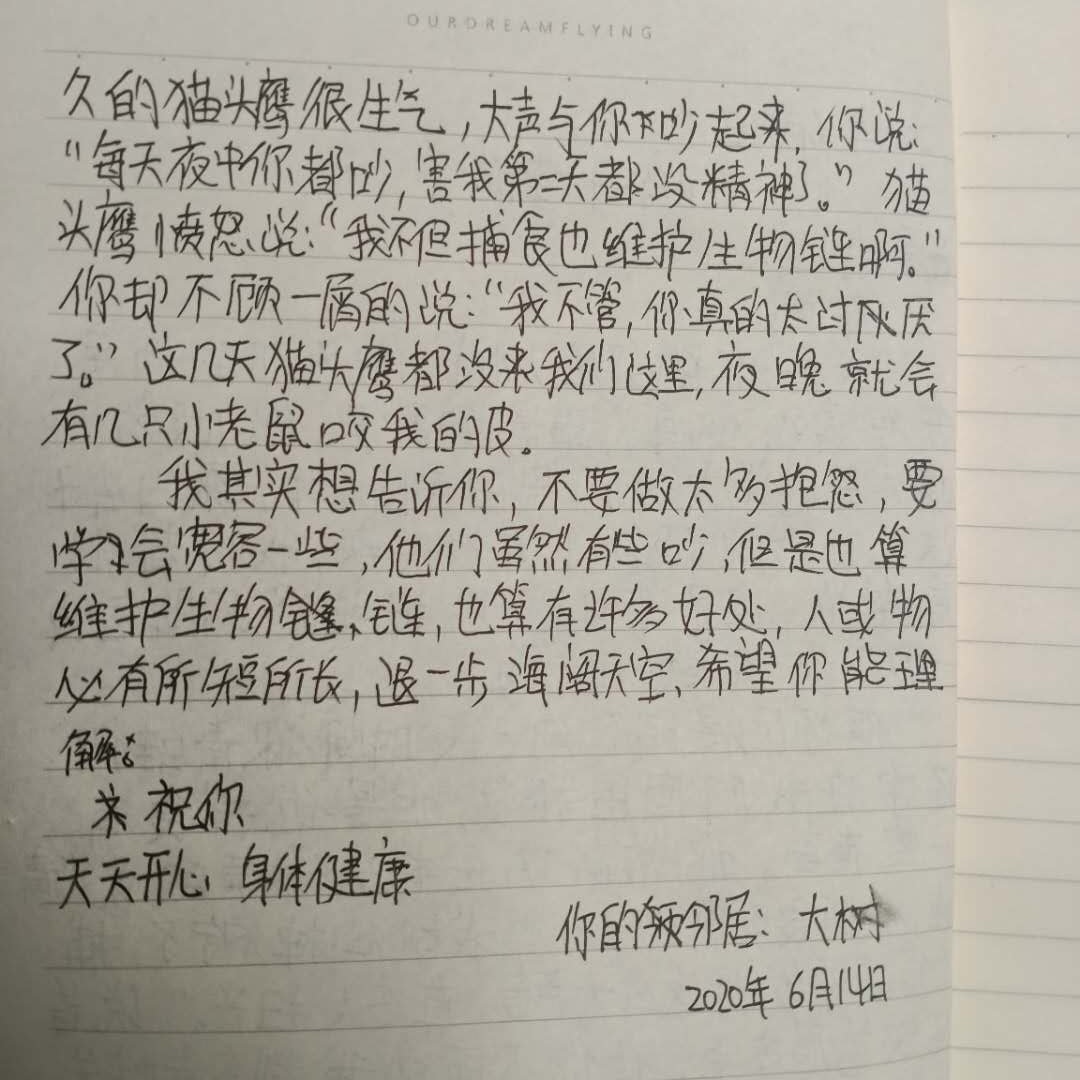 OURDREAMFLYING
久的猫头鹰很生气,大声与你吵起来,你说:
“每天夜中你都吵,害我第二天都没精神了。”猫
头鹰愤怒说:“我不但捕食也维护生物链啊。”
你却不顾一屑的说:“我不管,你真的太讨厌
了。”这几天猫头鹰都没来我们这里,夜晚就会
有几只小老鼠咬我的皮。
我其实想告诉你,不要做太多抱怨,要
学习会宽容一些,他们虽然有些吵,但是也算
维护生物链,也算有许多好处,人或物
必有所短所长,退一步海阔天空,希望你能理
解。
祝你
天天开心 身体健康
你的邻居:大树
2020年6月14日